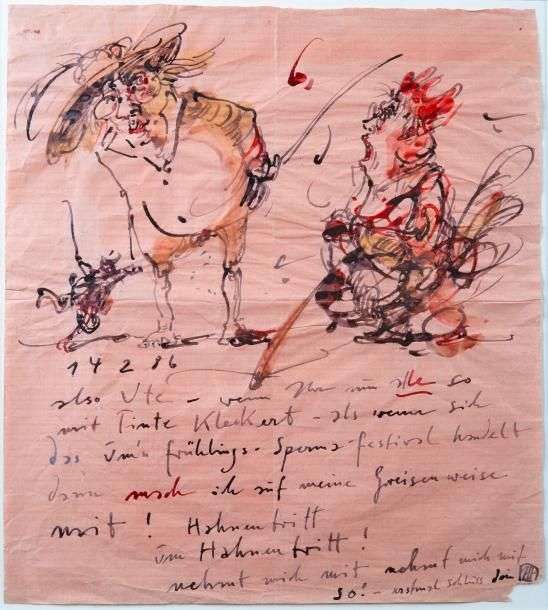 14 2 86
also Ute - wenn Ihr nun alle so
mit Tinte Kleckert - als wenn sich
das um'n frühlings-Sperma-festival handelt
dann mach ich auf meine Greisenweise
mit! Hahnentritt
um Hahnentritt!
nehmt mich mit nehmt mich mit
so! - Schluss dein